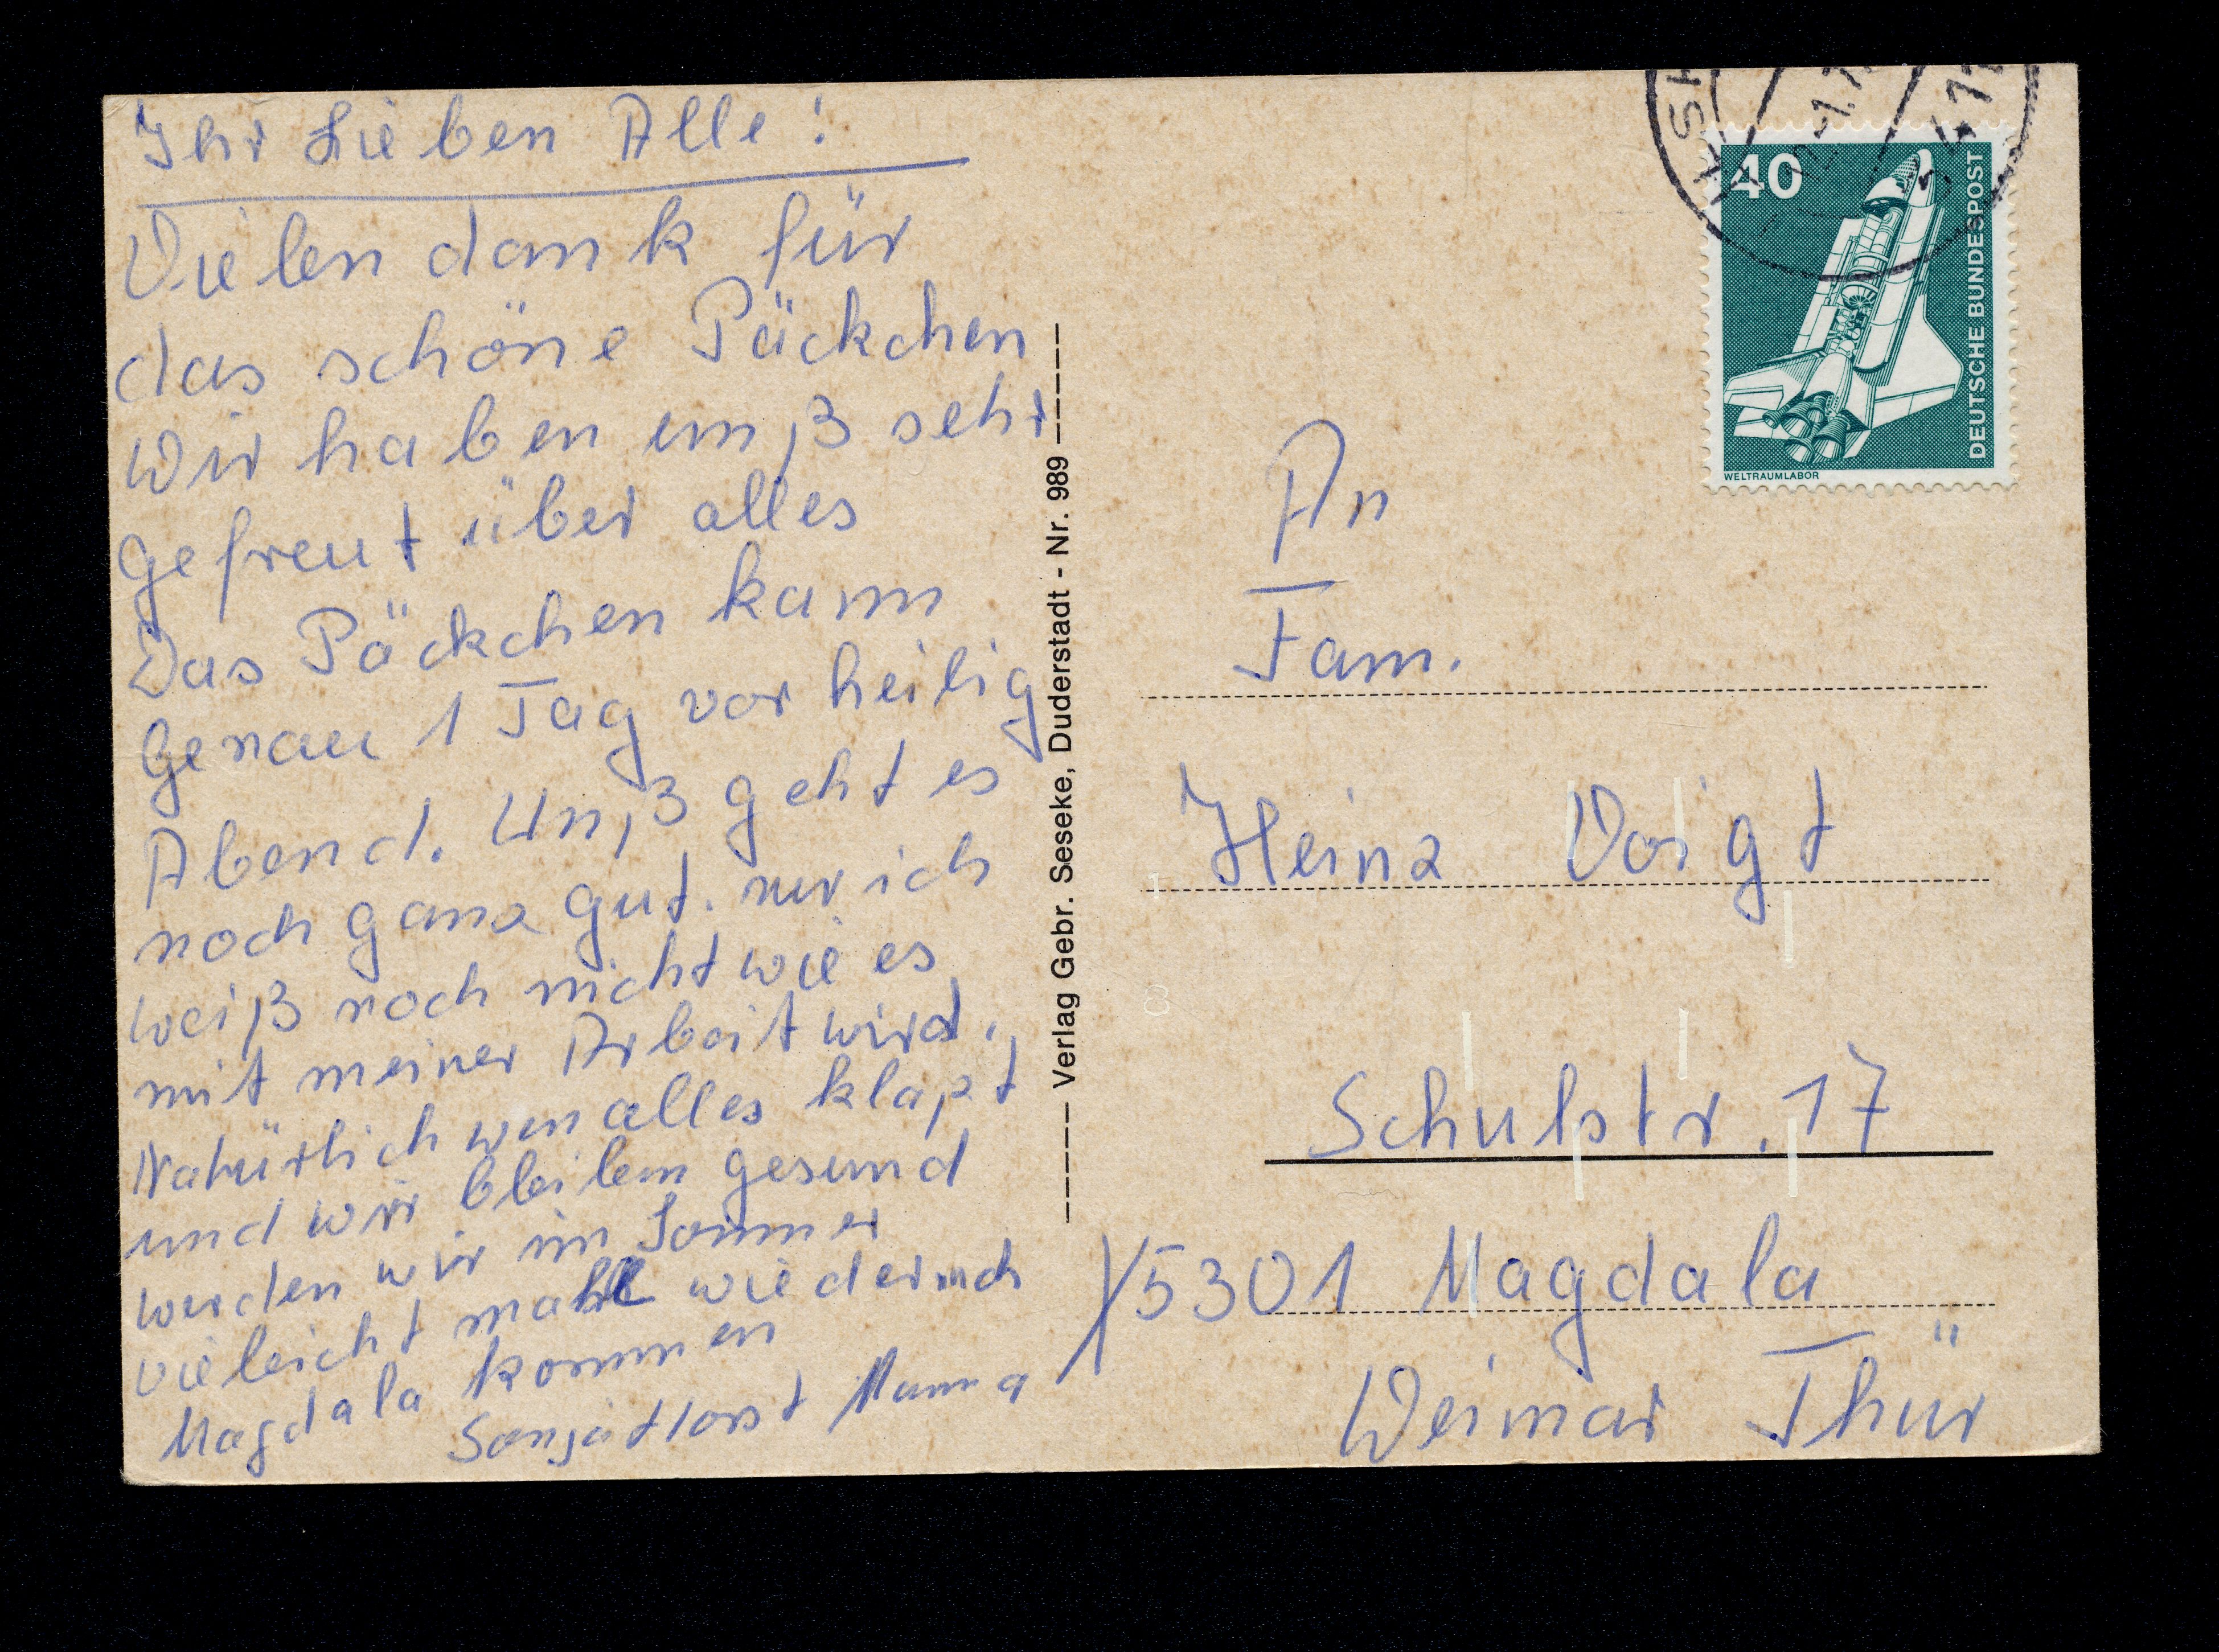 Ihr Lieben Alle!
Vielen dank für
das schöne Päckchen
Wir haben unß sehr
gefreut über alles
Das Päckchen kamm
Genau 1 Tag vor heilig
Abend. Unß geht es
noch ganz gut. nur ich
weiß noch nicht wie es
mit meiner Arbeit wird.
Natürlich wen alles klapt
und wir bleiben gesund
werden wir im Sommer
vieleicht mahl wieder nach
Magdala kommen
Horst Mama
Verlag Gebr. Seseke, Duderstadt - Nr. 989
40
DEUTSCHE BUNDESPOST
WELTRAUMLABOR
An
Fam.
Heinz Voigt
Schulstr. 17
5301 Magdala
Weimar Thür